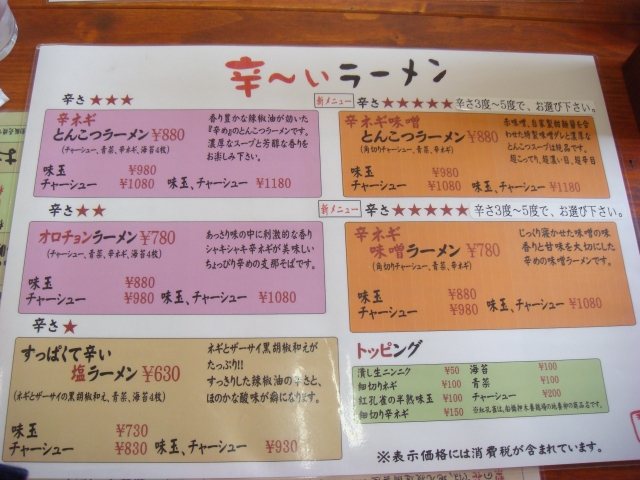 辛〜いラーメン
辛さ★★★
辛ネギ
とんこつラーメン ¥880
(チャーシュー、青菜、辛ネギ、海苔4枚)
香り豊かな辣椒油が効いた
『辛め』のとんこつラーメンです。
濃厚なスープと芳醇な香りを
お楽しみ下さい。
味玉 ¥980
チャーシュー ¥1080 味玉、チャーシュー ¥1180
新メニュー 辛さ★★★★★ 辛さ3度〜5度で、お選び下さい。
辛ネギ味噌
とんこつラーメン ¥880
(角切りチャーシュー、青菜、辛ネギ)
赤味噌、自家製麹辣醤を合
わせた特製味噌ダレと濃厚な
とんこつスープは絶品です。
超こってり、超濃い目、超辛目
味玉 ¥980
チャーシュー ¥1080 味玉、チャーシュー ¥1180
辛さ★★
オロチョンラーメン ¥780
(チャーシュー、青菜、辛ネギ、海苔4枚)
あっさり味の中に刺激的な香り
シャキシャキ辛ネギが美味しい
ちょっぴり辛めの支那そばです。
味玉 ¥880
チャーシュー ¥980 味玉、チャーシュー ¥1080
新メニュー 辛さ★★★★★ 辛さ3度〜5度で、お選び下さい。
辛ネギ
味噌ラーメン ¥780
(角切りチャーシュー、青菜、辛ネギ)
じっくり寝かせた味噌の味
香りと甘味を大切にした
辛めの味噌ラーメンです。
味玉 ¥880
チャーシュー ¥980 味玉、チャーシュー ¥1080
辛さ★
すっぱくて辛い
塩ラーメン ¥630
(ネギとザーサイの黒胡椒和え、青菜、海苔4枚)
ネギとザーサイ黒胡椒和えが
たっぷり!!
すっきりした辣椒油の辛さと、
ほのかな酸味が癖になります。
味玉 ¥730
チャーシュー ¥830 味玉、チャーシュー ¥930
トッピング
潰し生ニンニク ¥50 海苔 ¥100
細切りネギ ¥100 青菜 ¥100
紅孔雀の半熟味玉 ¥100 チャーシュー ¥200
細切り辛ネギ ¥150
※表示価格には消費税が含まれています。